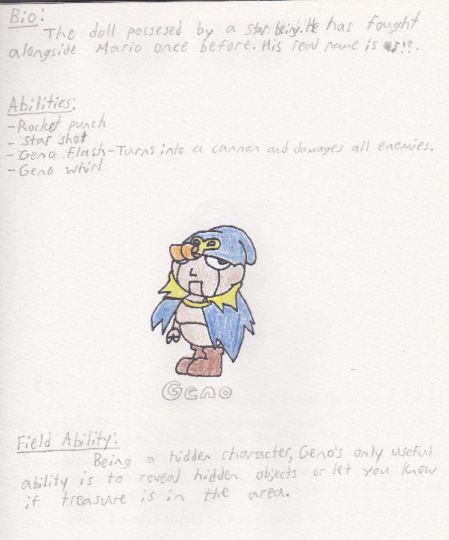 Bio:
The doll possesed by a star being. He has fought
alongside Mario once before. His real name is ♥♪!?.
Abilities:
- Rocket punch
- Star shot
- Geno flash - Turns into a cannon and damages all enemies.
- Geno whirl
Geno
Field Ability:
Being a hidden character, Geno's only useful
ability is to reveal hidden objects or let you know
if treasure is in the area.